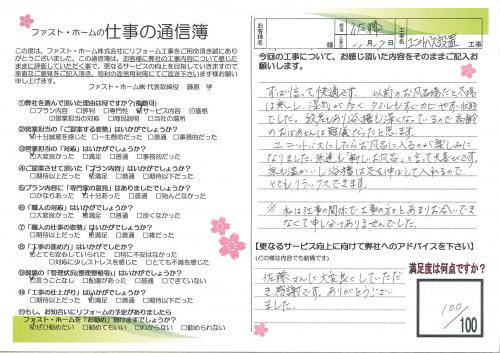 ファスト・ホームの仕事の通信簿
この度は、ファスト・ホーム株式会社にリフォーム工事をご用命頂き誠にあり
がとうございました。この通信簿は、お客様に弊社の工事内容について感じた
ままに評価していただく事で、更なるサービスの向上を目指していきますので
率直なご意見をご記入頂き、同封の返信用封筒にてご返送下さいます様お願い
申し上げます。
ファスト・ホーム㈱ 代表取締役 藤原 学
①弊社を選んで頂いた理由は何ですか?(複数可)
□プラン内容 □商品説明 □専門性 ☑サービス内容 ☑価格
□営業担当の印象 □現場が近い □当社の場所
②営業担当の「ご提案する姿勢」はいかがでしょうか?
☑十分誠意を感じた □一生懸命だった □普通 □不満
③営業担当の「対応」はいかがでしょうか?
☑大変良かった □満足 □普通 □事務的だった
④ご提案させて頂いた「プラン内容」はいかがでしょうか?
□期待以上だった ☑満足 □普通 □期待以下だった
⑤プラン内容に「専門家の意気」はありましたでしょうか?
□かなりあった ☑十分あった □普通 □殆んどなかった
⑥「職人の対応」はいかがでしょうか?
□大変良かった ☑満足 □普通 □良くなかった
⑦「職人の仕事の姿勢」はいかがでしょうか?
□期待以上だった ☑満足 □普通 □事務的だった
⑧「工事の進め方」はいかがでしたか?
□とても安心していられた □特に不安はなかった
□対応に少しストレスを感じた □とても不満を感じた
⑨現場の「管理状況(整理整頓等)」はいかがでしょうか?
☑言うことなし □配慮があった □普通 □できていない
⑩「工事の仕上がり」はいかがでしょうか?
□期待以上だった ☑満足 □普通 □期待以下だった
⑪もし、お知合いにリフォームの予定がありましたら
ファスト・ホームを「お勧め」頂けますでしょうか?
☑ぜひ勧めたい □勧めてもいい □わからない □勧められない
お客様名
様
担当
佐藤
工事名
ユニットバス設置
工事
今回の工事について、お感じ頂いた内容をそのままご記入お
願いします。
ずばり言って快適です。以前のお風呂場だと冬場
は寒いし、湿気が多く、タイルもすぐカビや赤水状態
でした。段差もあり浴槽も深くなっているので高齢
の母はかなりの難儀だったと思います。
ユニットバスにしたらお風呂に入るのが楽しみに
なりました。孫達も「新しいお風呂」と言って大喜びです。
床も温かいし浴槽は足を伸ばして入れるので、
とてもリラックスできます。
※私は仕事の関係で工事の方とあまりお会いでき
なくて申し分けありませんでした。
【更なるサービス向上に向けて弊社へのアドバイスを下さい】
(どの様な内容でも結構です)
佐藤さんに大変良くしていただ
き感謝です。ありがとうござい
ました。
満足度は何点ですか?
100/
100